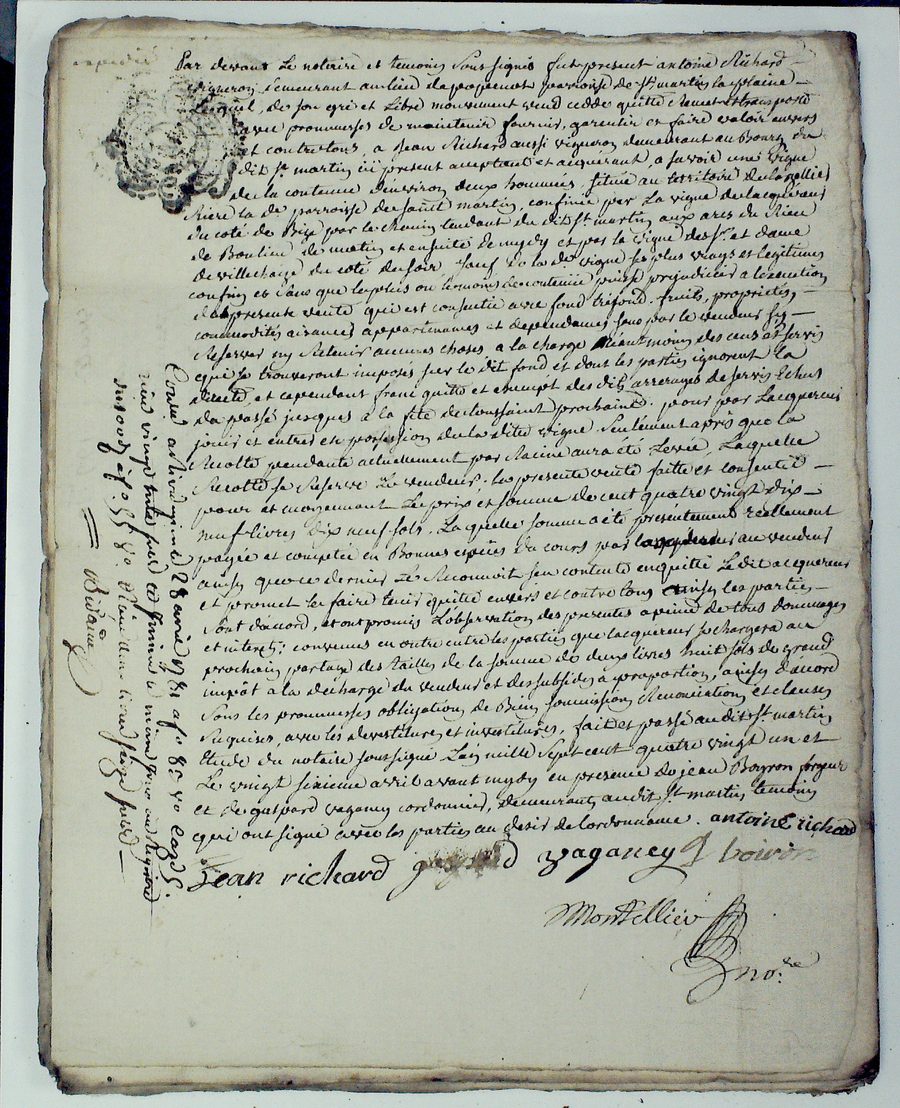 expedié
Par devant Le notaire et temoins Soussignés fut present antoine Richard
vigneron demeurant au lieu de papenot parroisse de st martin la plaine
Lequel, de son gré et Libre mouvement vend cedde quitte Remet et transporte
avec prommesses de maintenir fournir, garentir et faire valoir envers
et contre tous, a Jean Richard aussi vigneron demeurant au Bourg du
dit st martin ici present acceptant et acquerant, a savoir une vigne
de la contenue d'environ deux hommées, située au territoire de
Riere la de parroisse de saint martin, confinée par La vigne de Lacquereur
du coté de Bize par le chemin tendant du dit st martin aux arcs du Rieu
de Boulieu de matin et ensuite de midy et par la vigne des sr. et dame
de villechaize du coté du soir, sauf de la de vigne ses plus vrays et legitimes
confins et sans que le plus ou le moins de contenue puisse prejudicier a l'execution
de la presente vente qui est consentie avec fond trefond, fruits, proprietés,
commodités aisances appartenances et dependances sans par le vendeur sy
Reserver ny Retenir aucunes choses, a la charge neantmoins des cens et servis
qui se trouveront imposés sur le dit fond et dont les parties ignorent la
, et cependant franc quitte et exempt des dits arrerages de servis Echus
du passé jusques a la fete de toussaint prochaine. pour par Lacquereur
jouir et entrer en possession de la dite vigne Seulement apres que la
Recolte pendante actuellement par Racine aura été Levée, Laquelle
Recolte se Reserve Le vendeur. La presente vente faitte et consentie
pour et moyennant Le prix et somme de cent quatre vingt dix
neuf livres dix neuf sols. Laquelle somme a été presentement reellement
payée et comptée en Bonnes especes du cours par lacquereur au vendeur
ainsy que ce dernier Le Reconnoit s'en contente en quitte Le dit acquereur
et promet Le faire tenir quitte envers et contre tous ainsy les parties
sont d'accord, et ont promis L'observation des presentes a peine de tous dommages
et interets; convenus en outre entre les parties que lacquereur se chargera au
prochain partage des Tailles de la somme de deux livres huit sols de grand
impôt a la décharge du vendeur et des subsides a proportion, ainsy d'accord
Sous les prommesses obligation de Biens soumissions Renonciations et clauses
Requises, avec les devestitures et investitures, fait et passé au dit st martin
Etude du notaire soussigné L'an mille sept cent quatre vingt un et
Le vingt sixieme avril avant midy en presence de jean Boyron forgeur
et de gaspard vaganey cordonnier, demeurants au dit st martin temoins
qui ont signé avec les parties au desir de Lordonnance. antoine richard
Jean richard gaspard vaganey J boiron
Montellier
nore
Controllé a Rivedegier le 28 avril 1781 fo 82 vo case
Reçu vingt trois sols
insinué